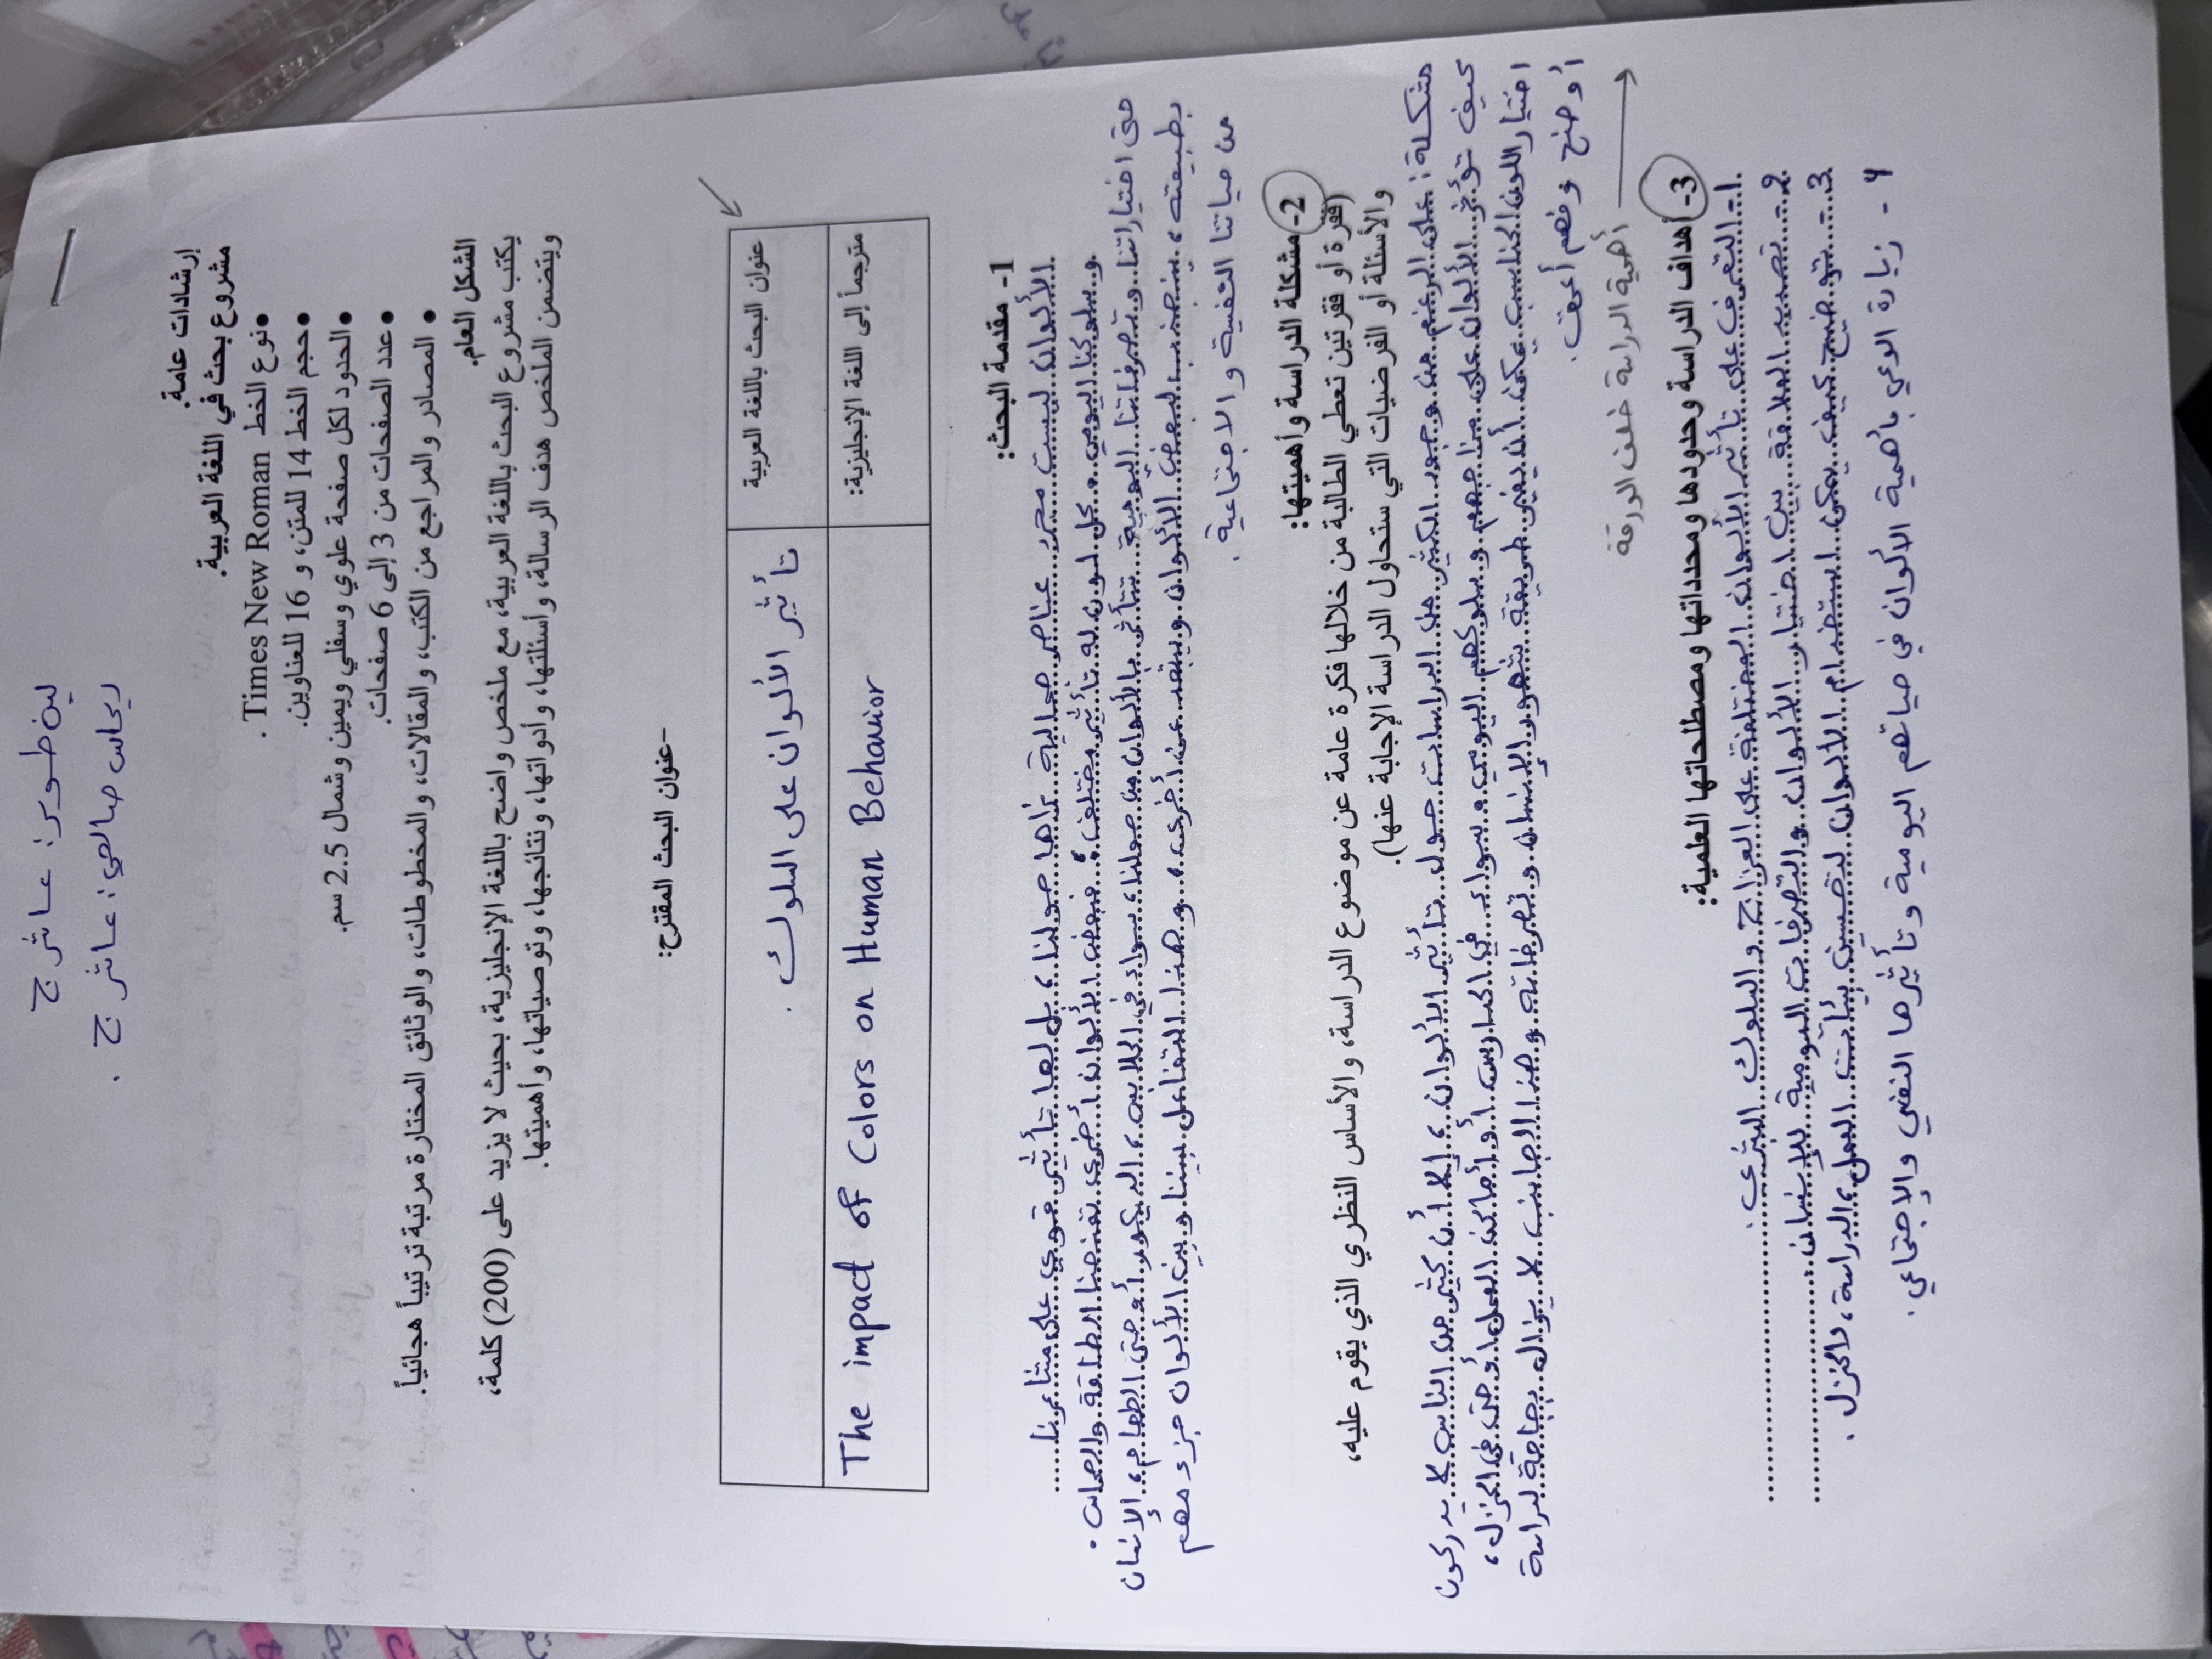 لين طوير: عاشر ج
ريماس صالحي: عاشر ج.
إرشادات عامة.
مشروع بحث في اللغة العربية.
• نوع الخط Times New Roman .
• حجم الخط 14 للمتن، و 16 للعناوين.
• الحدود لكل صفحة علوي وسفلي ويمين وشمال 2.5 سم.
• عدد الصفحات من 3 إلى 6 صفحات.
• المصادر والمراجع من الكتب، والمقالات، والمخطوطات، والوثائق المختارة مرتبة ترتيباً هجائياً.
الشكل العام.
يكتب مشروع البحث باللغة العربية، مع ملخص واضح باللغة الإنجليزية، بحيث لا يزيد على (200) كلمة،
ويتضمن الملخص هدف الرسالة، وأسئلتها، وأدواتها، ونتائجها، وتوصياتها، وأهميتها.
-عنوان البحث المقترح:
عنوان البحث باللغة العربية
تأثير الألوان على السلوك .
مترجماً إلى اللغة الإنجليزية:
The impact of Colors on Human Behavior
1- مقدمة البحث:
الألوان ليست مجرد عناصر جمالية نراها حولنا، بل لها تأثير قوي على مشاعرنا
و سلوكنا اليومي. كل لون له تأثير مختلف، فبعض الألوان أخرى تمنحنا الطاقة والحماس.
حتى اختياراتنا وتصرفاتنا اليومية تتأثر بالألوان من حولنا، سواء في الملابس، الديكور أو حتى الطعام، الإنسان
بطبيعته، ينجذب لبعض الألوان ويبتعد عن أخرى، وهذا التفاعل بيننا وبين الألوان جزء مهم
من حياتنا النفسية والاجتماعية.
2- مشكلة الدراسة وأهميتها:
(فقرة أو فقرتين تعطي الطالبة من خلالها فكرة عامة عن موضوع الدراسة، والأساس النظري الذي يقوم عليه،
والأسئلة أو الفرضيات التي ستحاول الدراسة الإجابة عنها).
مشكلة: على الرغم من وجود الكثير من الدراسات حول تأثير الألوان، إلا أن كثير من الناس لا يدركون
كيف تؤثر الألوان على مزاجهم و سلوكهم اليومي، سواء في المدارس، أو أماكن العمل أو حتى في المنزل،
اختيار اللون المناسب يمكن أن يغير طريقة شعور الإنسان وتصرفاته وهذا الجانب لا يزال بحاجة لدراسة
أوضح وفهم أعمق.
أهمية الدراسة خلف الورقة
3- أهداف الدراسة وحدودها ومحدداتها ومصطلحاتها العلمية:
1- التعرف على تأثير الألوان المختلفة على المزاج و السلوك البشري.
2- تحديد العلاقة بين اختيار الألوان والتصرفات اليومية للإنسان.
3- توضيح كيف يمكن استخدام الألوان لتحسين بيئات العمل، الدراسة، المنزل.
4- زيادة الوعي بأهمية الألوان في حياتهم اليومية وتأثيرها النفسي والاجتماعي.